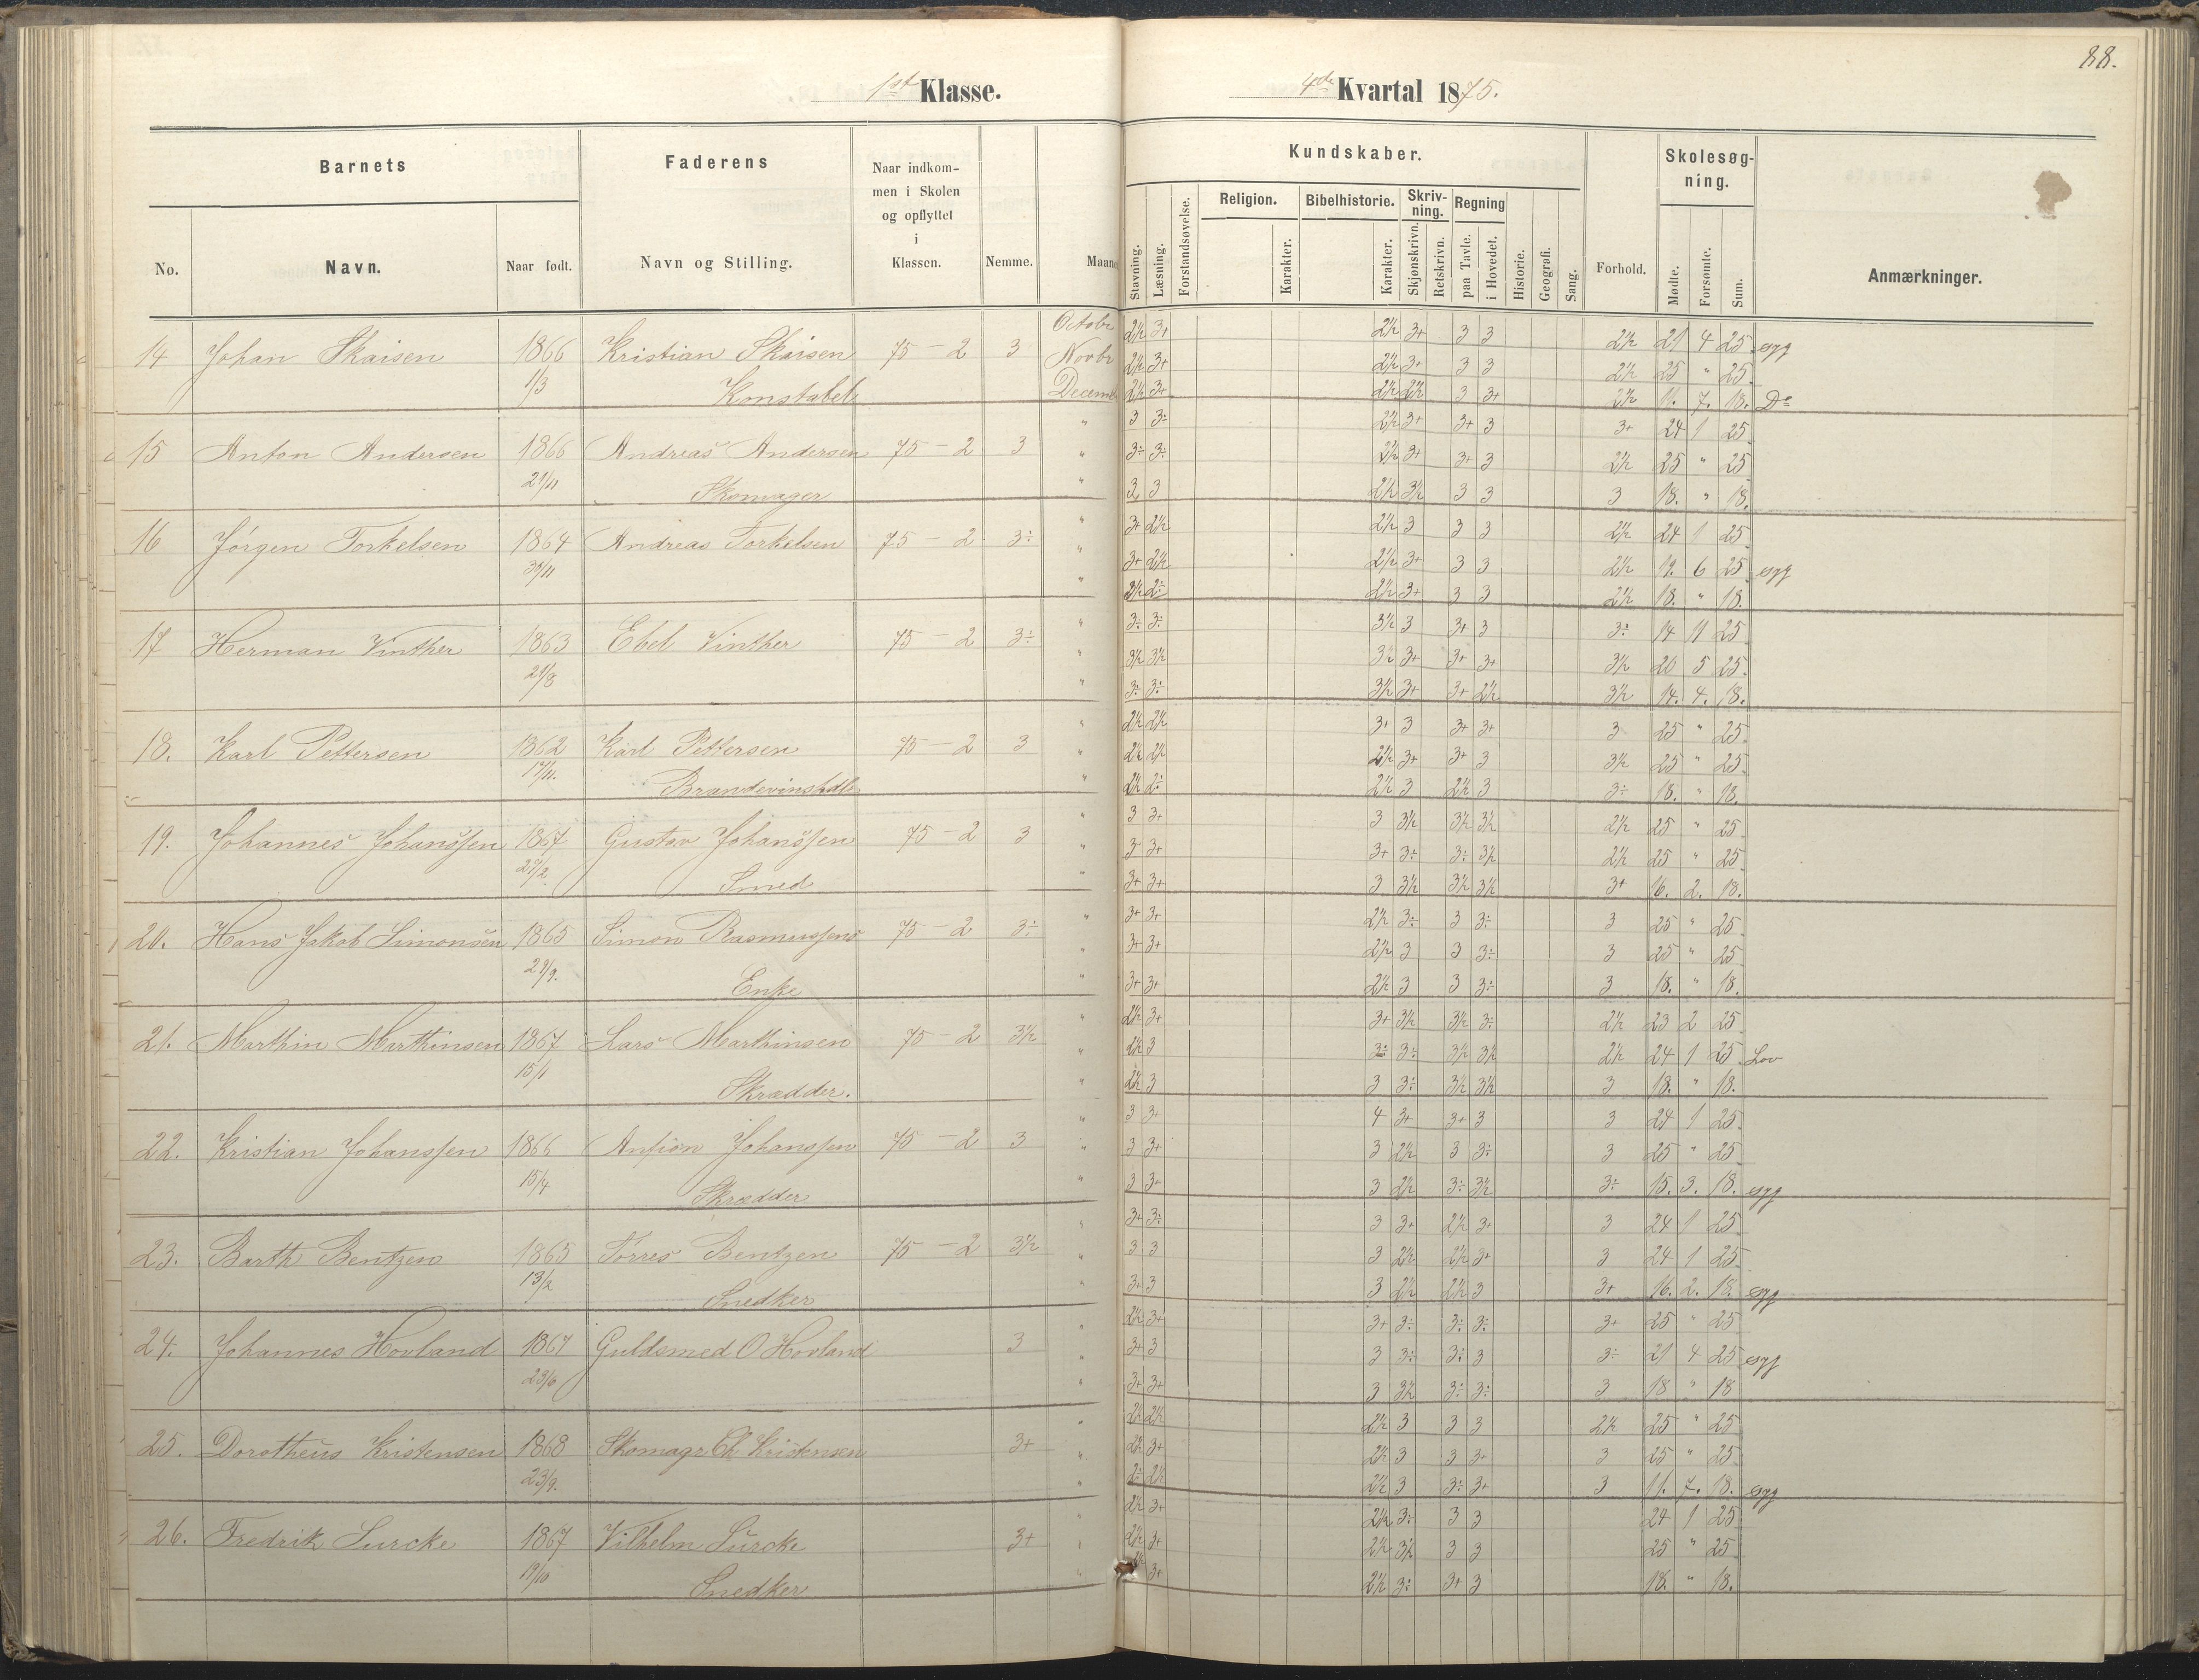 88.
1st Klasse.
4de Kvartal 1875.
Barnets
Faderens
Naar indkom-
men i Skolen
og opflyttet
i
Klassen.
Nemme.
Kundskaber.
Skolesøg-
ning.
No.
Navn.
Naar født.
Navn og Stilling.
Stavning.
Læsning.
Forstandsøvelse.
Religion.
Karakter.
Bibelhistorie.
Karakter.
Skriv-
ning.
Skjønskrivn.
Retskrivn.
Regning
paa Tavle.
i Hovedet.
Historie.
Geografi.
Sang.
Forhold.
Mødte.
Forsømte.
Sum.
Anmærkninger.
14 Johan Skaisen 1866 Kristian Skaisen 75 - 2 3
1/3 Konstabel
Octobr 2½ 3+ 2½ 3+ 3 3 2½ 21 4 25 syg
Novbr 2½ 3+ 2½ 3+ 3 3 2½ 25 " 25
2½ 3+ 2½ 2½ 3 3+ 2½ 11. 7. 18. Do
15 Anton Andersen 1866 Andreas Andersen 75 - 2 3
Skomager
" 3 3÷ 2½ 3+ 3+ 3 3+ 24 1 25
" 3÷ 3÷ 2½ 3+ 3+ 3 2½ 25 " 25
" 3 3 2½ 3½ 3 3 3 18. " 18.
16 Jørgen Torkelsen 1864 Andreas Torkelsen 75 - 2 3÷
30/11
" 3+ 2½ 2½ 3 3 3 2½ 24 1 25
" 3+ 2½ 2½ 3+ 3 3 2½ 19. 6 25 syg
" 2½ 2÷ 2½ 3+ 3 3 2½ 18. " 18.
17 Herman Vinther 1863 Ebel Vinther 75 - 2 3÷
" 3÷ 3÷ 3½ 3 3+ 3 3÷ 14 11 25
" 3½ 3½ 3½ 3+ 3+ 3+ 3½ 20 5 25
" 3÷ 3÷ 3½ 3+ 3+ 2½ 3½ 14. 4. 18.
18. Karl Pettersen 1862 Karl Pettersen 75 - 2 3
Brændevinshdl
" 2½ 2½ 3+ 3 3+ 3+ 3 25 " 25
" 2½ 2½ 2½ 3+ 3+ 3 3½ 25 " 25
" 2½ 2÷ 2½ 3 2½ 3 3÷ 18. " 18.
19. Johannes Johanssen 1867 Gustav Johanssen 75 - 2 3
Smed
" 3 3+ 3 3½ 3½ 3½ 2½ 25 " 25
" 3 3+ 3+ 3÷ 3÷ 3½ 2½ 25 " 25
" 3+ 3+ 3 3½ 3½ 3½ 3+ 16. 2. 18.
20. Hans Jakob Simonsen 1865 Simon Rasmussens 75 - 2 3÷
Enke
" 3+ 3+ 2½ 3÷ 3 3÷ 3 25 " 25
" 3+ 3+ 2½ 3 3 3÷ 3 25 " 25
" 3+ 3+ 2½ 3 3 3÷ 3 18. " 18.
21. Marthin Marthinsen 1867 Lars Marthinsen 75 - 2 3½
15/1 Skrædder.
" 2½ 3+ 3+ 3½ 3½ 3÷ 2½ 23 2 25
" 2½ 3 3÷ 3÷ 3½ 3½ 2½ 24 1 25 Lov
" 2½ 3 3 3÷ 3½ 3½ 3 18. " 18.
22. Kristian Johanssen 1866 Johanssen 75 - 2 3
15/4 Skrædder
" 3 3+ 4 3+ 3+ 3 3 24 1 25
" 3 3+ 3 2½ 3 3÷ 3 25 " 25
" 3 3+ 3 2½ 3÷ 3½ 3÷ 15. 3. 18. syg
23. Barth Bentzen 1865 Tørres Bentzen 75 - 2 3½
13/2 Snedker
" 3+ 3÷ 3 3+ 2½ 3+ 3 24 1 25
" 3 3 3 2½ 2½ 3+ 3 24 1 25
" 3+ 3 3 2½ 2½ 3 3+ 16. 2. 18. syg
24. Johannes Hovland 1867 Guldsmed O Hovland 3
23/6
" 2½ 3+ 3+ 3÷ 3÷ 3÷ 3+ 25 " 25
" 3+ 3 3 3÷ 3÷ 3 3÷ 21 4 25 syg
" 3+ 3+ 3 3½ 3÷ 3÷ 3 18 " 18
25. Dorotheus Kristensen 1868 Skomagr Ch Kristensen 3+
23/9.
" 2÷ 2½ 2½ 3 3 3 2½ 25 " 25
" 2½ 3+ 2½ 3 3 3+ 3 25 " 25
" 2÷ 2½ 2½ 3 3÷ 3+ 3 11. 7. 18. syg
26. Fredrik Surcke 1867 Vilhelm Surcke 3+
19/10 Snedker
" 2½ 3+ 2½ 3÷ 3 3 24 1 25
" 2½ 3+ 2½ 3½ 3 3 25 " 25
" 3+ 2½ 3÷ 3+ 3 18. " 18.